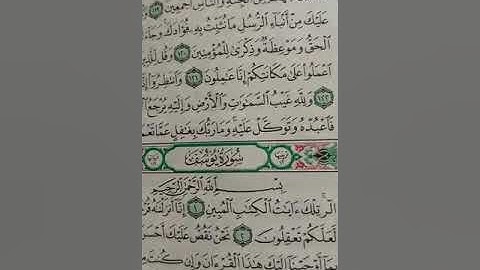 ٱلۡجِنَّةِ وَٱلنَّاسِ أَجۡمَعِينَ ١١٩
عَلَيۡكَ مِنۡ أَنۢبَآءِ ٱلرُّسُلِ مَا نُثَبِّتُ بِهِۦ فُؤَادَكَ وَجَآءَ
ٱلۡحَقُّ وَمَوۡعِظَةٞ وَذِكۡرَىٰ لِلۡمُؤۡمِنِينَ ١٢٠ وَقُل لِّلَّذِينَ
ٱعۡمَلُواْ عَلَىٰ مَكَانَتِكُمۡ إِنَّا عَٰمِلُونَ ١٢١ وَٱنتَظِرُوٓاْ
١٢٢ وَلِلَّهِ غَيۡبُ ٱلسَّمَٰوَٰتِ وَٱلۡأَرۡضِ وَإِلَيۡهِ يُرۡجَعُ
فَٱعۡبُدۡهُ وَتَوَكَّلۡ عَلَيۡهِۚ وَمَا رَبُّكَ بِغَٰفِلٍ عَمَّا
سُورَةُ يُوسُفَ
بِسۡمِ ٱللَّهِ ٱلرَّحۡمَٰنِ ٱلرَّحِيمِ
الٓرۚ تِلۡكَ ءَايَٰتُ ٱلۡكِتَٰبِ ٱلۡمُبِينِ ١ إِنَّآ أَنزَلۡنَٰهُ
لَّعَلَّكُمۡ تَعۡقِلُونَ ٢ نَحۡنُ نَقُصُّ عَلَيۡكَ أَحۡسَنَ
بِمَآ أَوۡحَيۡنَآ إِلَيۡكَ هَٰذَا ٱلۡقُرۡءَانَ وَإِن كُنتَ